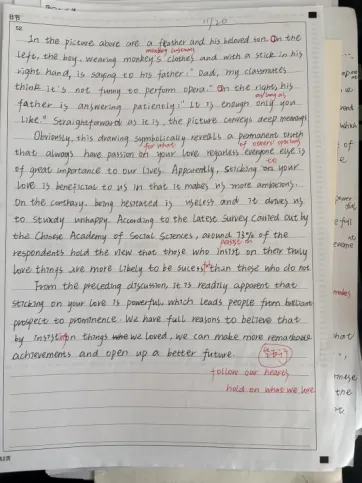 11/20
52
In the picture above are a feather and his beloved son. On the
monkey costumes
left, the boy, wearing monkey's clothes and with a stick in his
right hand, is saying to his father: " Dad, my classmates
think it's not funny to perform opera." On the right, his
as long as
father is answering patiently: " It is enough only you
like." Straightforward as it is, the picture conveys deep meanings.
Obviously, this drawing symbolically reveals a permanent truth
for what of others' opinions
that always have passion on your love regarless everyone else is
to
of great importance to our lives. Apparently, Sticking on your
love is beneficial to us in that it makes us more ambitions.
On the contrary, being hesitated is useless and it drives us
to sturdy unhappy. According to the latest Survey carried out by
the Chinese Academy of Social Sciences, around 73% of the
persist on
respondents hold the view that those who insist on their truly
love things are more likely to be sucess than those who do not.
From the preceding discussion, it is readily apparent that
sticking on your love is powerful which leads people from brilliant
prospect to prominence. We have full reasons to believe that
by insistion things we loved, we can make more remarkable
achievements and open up a better future.
follow our hearts
hold on what we love